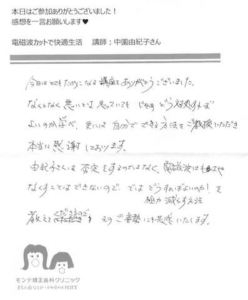 本日はご参加ありがとうございました！
感想を一言お願いします♥
電磁波カットで快適生活　講師：中園由紀子さん
今日はとてもためになる講座をありがとうございました。
なんとなく悪いとは思っていても じゃあどう対処すれば
よいのか学べ、更には自分でできる方法をご教授いただき
本当に感謝しております。
由紀子さんは否定をするのではなく、電磁波はもはや
なくすことはできないので、ではどうすればよいのか！を
極力減らす方法
教えて くださるので
モンテ矯正歯科クリニック